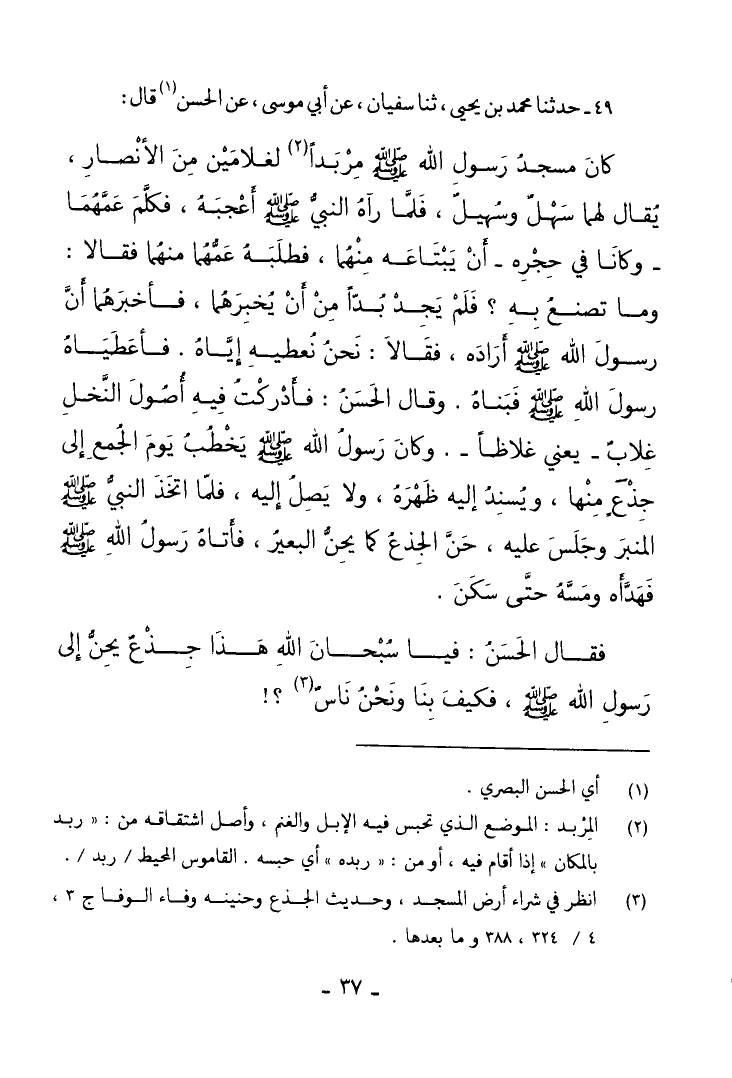 ٤٩ ـ حدثنا محمد بن يحيى ، ثنا سفيان ، عن أبي موسى ، عن الحسن(١) قال :
كانَ مسجدُ رَسولِ الله ﷺ مِرْبَداً(٢) لغلامَيْن مِنَ الأنْصارِ ،
يُقال لهما سَهْلٌ وسُهيلٌ ، فَلمَّا رآهُ النبيُّ ﷺ أَعْجبَهُ ، فكلَّم عَمَّهُمَا
ـ وكانَا في حِجْرِه ـ أنْ يَبْتَاعَه مِنْهُما ، فطلَبَهُ عَمُّهُما منهُما فقالا :
وما تصنعُ بهِ ؟ فَلَمْ يَجدْ بُدّاً مِنْ أنْ يُخبِرَهُما ، فأخبرَهُما أنَّ
رسولَ الله ﷺ أَرَادَه ، فقَالاَ : نَحنُ نُعطيهِ إيَّاهُ . فأعْطَيَاهُ
رسولَ اللهِ ﷺ فَبَناهُ . وقال الحَسَنُ : فأدْركْتُ فيهِ أُصُولَ النَّخلِ
غِلابٌ ـ يعني غلاظاً ـ . وكانَ رَسولُ الله ﷺ يَخْطُبُ يَومَ الجُمعِ إلى
جِذْعٍ مِنْها ، ويُسنِدُ إليه ظَهْرَهُ ، ولا يَصِلُ إليه ، فلمّا اتخَذَ النبيُّ ﷺ
المنبرَ وجَلَسَ عليه ، حَنَّ الجِذعُ كما يحِنُّ البعيرُ ، فأتاهُ رَسولُ اللهِ ﷺ
فَهَدَّأَه ومَسَّهُ حتَّى سَكَنَ .
فقال الحَسَنُ : فيا سُبْحانَ اللهِ هَذَا جِذْعٌ يحِنُّ إلى
رَسولِ الله ﷺ ، فكيفَ بِنَا ونَحْنُ نَاسٌ(٣) ؟!
(١) أي الحسن البصري .
(٢) المِرْبد : الموضع الذي تحبس فيه الإبل والغنم ، وأصل اشتقاقه من : « ربد
بالمكان » إذا أقام فيه ، أو من : « ربده » أي حبسه . القاموس المحيط / ربد / .
(٣) انظر في شراء أرض المسجد ، وحديث الجذع وحنينه وفاء الوفا ج ٣ ،
٤ / ٣٢٤ ، ٣٨٨ و ما بعدها .
ـ ٣٧ ـ